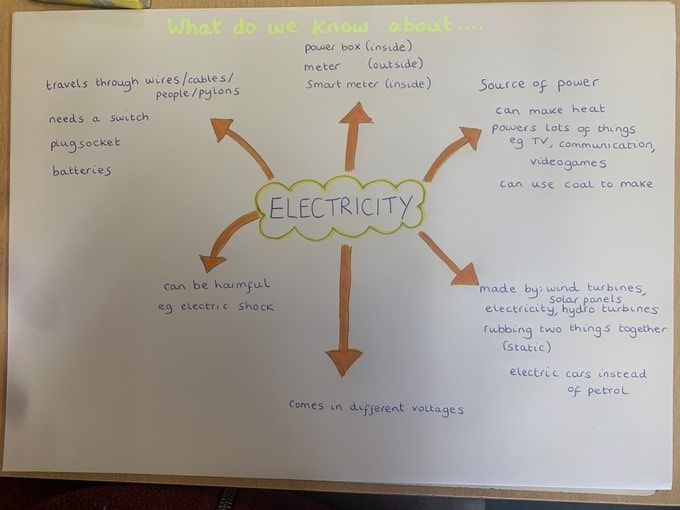 What do we know about....
power box (inside)
meter (outside)
Smart meter (inside)
travels through wires/cables/
people/pylons
needs a switch
plugsocket
batteries
Source of power
can make heat
powers lots of things
eg TV, communication,
videogames
can use coal to make
ELECTRICITY
can be harmful
eg electric shock
made by: wind turbines,
solar panels
electricity, hydro turbines
rubbing two things together
(static)
electric cars instead
of petrol
comes in different voltages